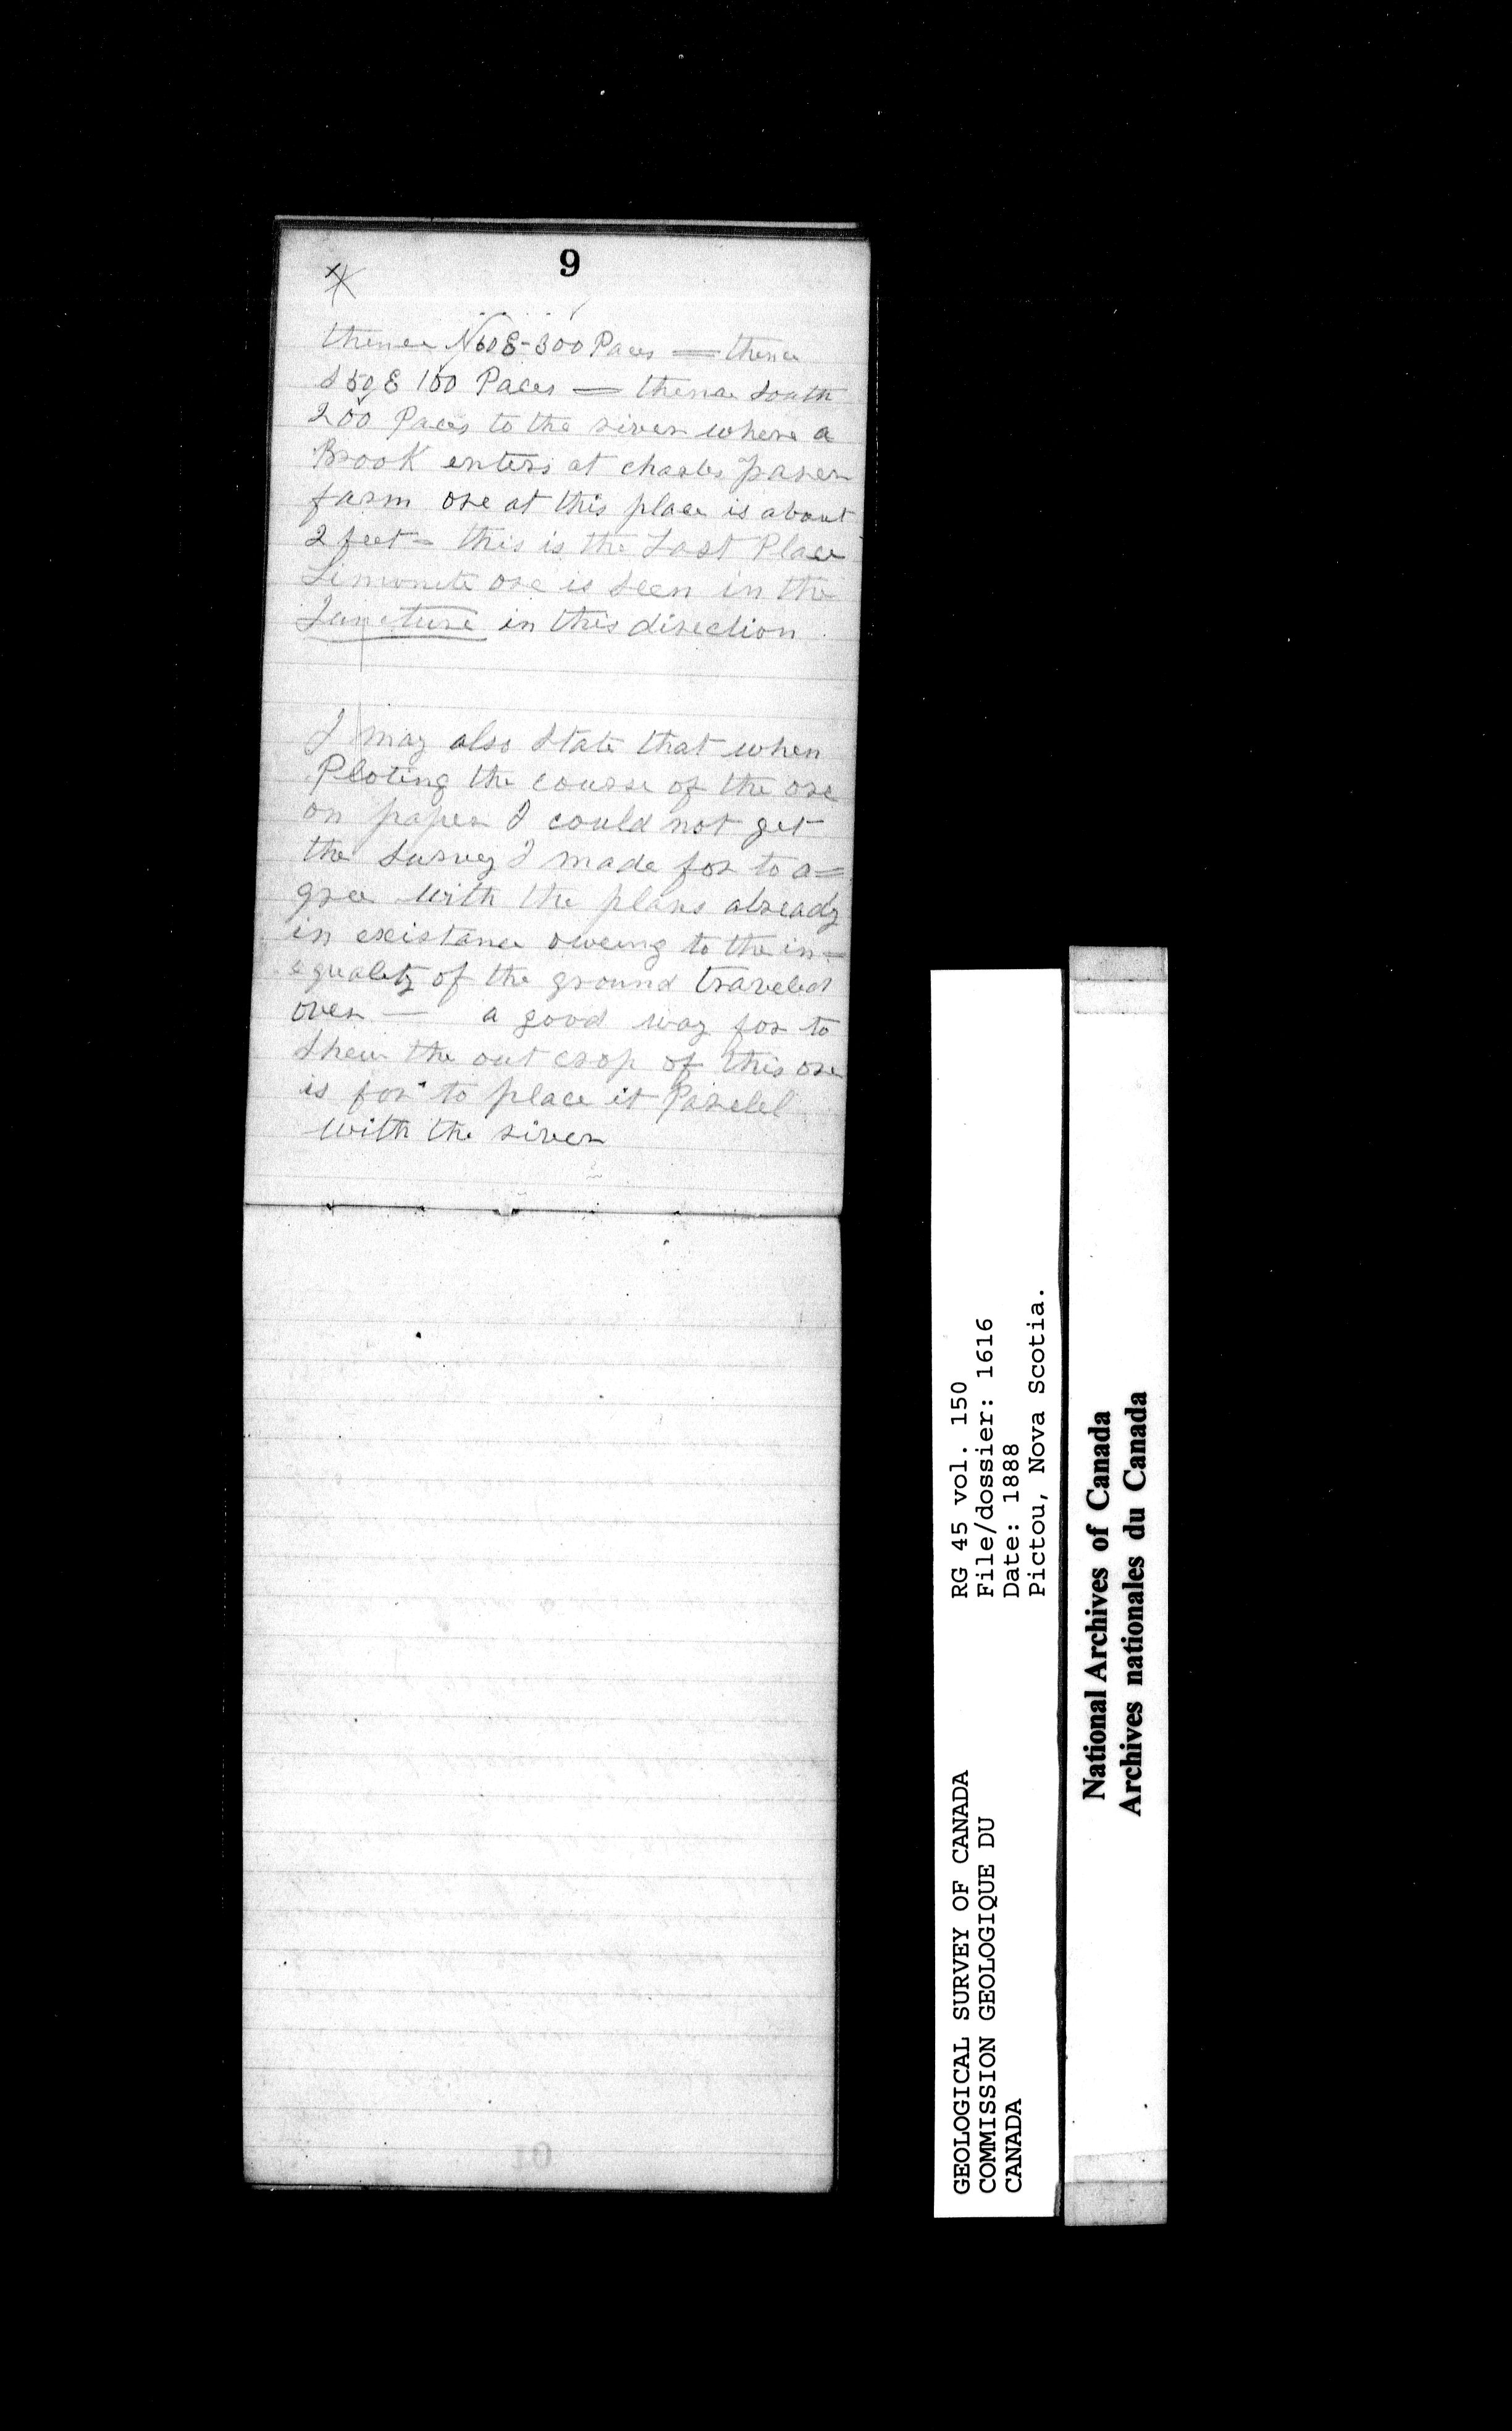 9
thence N60E-300 Paces = thence
S50E 150 Paces = thence South
200 Paces to the river where a
Brook enters at charles fraser
farm ore at this place is about
2 feet = this is the Last Place
Limonite ore is seen in the
Juncture in this direction
I may also State that when
Ploting the course of the ore
on paper I could not get
the Survey I made for to a=
gree with the plans already
in existance oweing to the in=
equality of the ground traveled
over — a good way for to
Shew the out crop of this ore
is for to place it Parelel
with the river
10
RG 45 vol. 150
File/dossier: 1616
Date: 1888
Pictou, Nova Scotia.
GEOLOGICAL SURVEY OF CANADA
COMMISSION GEOLOGIQUE DU
CANADA
National Archives of Canada
Archives nationales du Canada